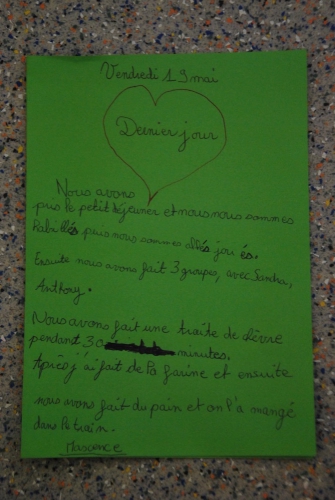 Vendredi 19 mai
Dernier jour
Nous avons
pris le petit déjeuner et nous nous sommes
habillés puis nous sommes allés joué és.
Ensuite nous avons fait 3 groupes, avec Sandra,
Anthony.
Nous avons fait une traite de chèvre
pendant 30 minutes.
Après j'ai fait de la farine et ensuite
nous avons fait du pain et on l'a mangé
dans le train.
Maxence